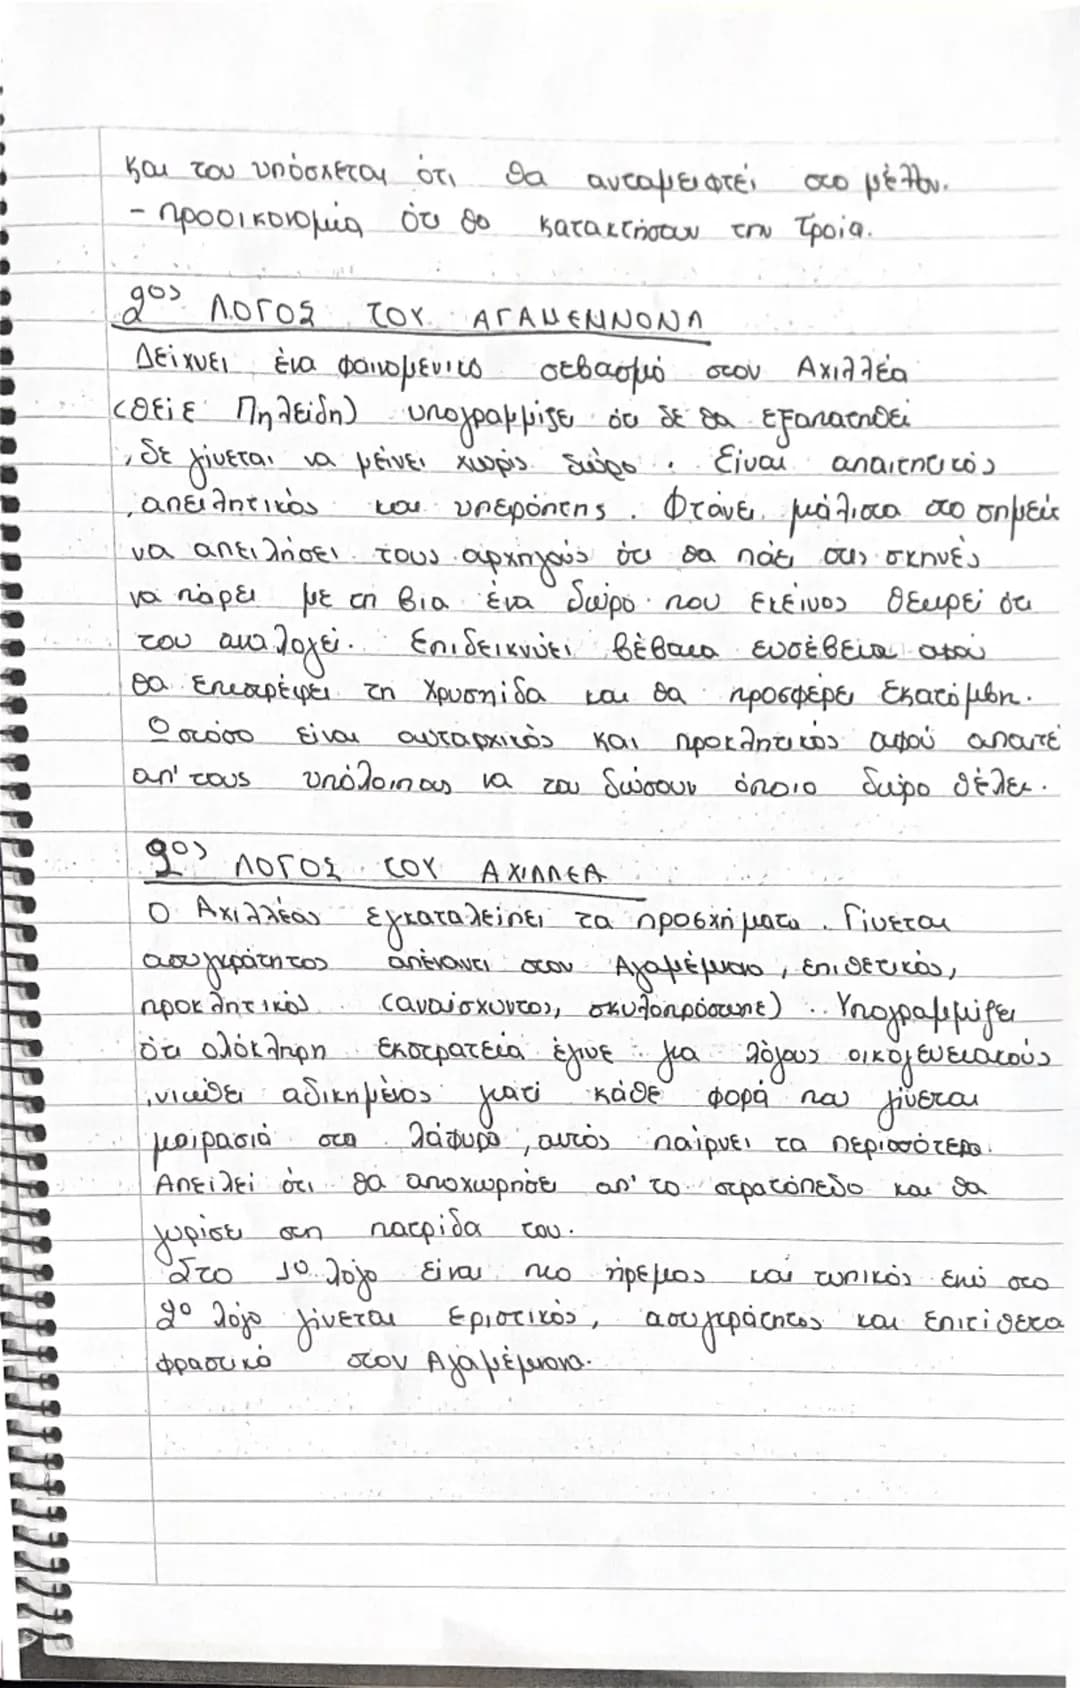 και του υπόσχεται ότι θα ανταμειφτεί στο μέλλον.
- προοικονομία ότι θα κατακτήσουν την Τροία.
2ος ΛΟΓΟΣ ΤΟΥ ΑΓΑΜΕΜΝΟΝΑ
Δείχνει ένα φαινομενικό σεβασμό στον Αχιλλέα
(Θείε Πηλείδη) υπογραμμίζε ότι δε θα εξαπατηθεί
, δε γίνεται να μείνει χωρίς δώρο. Είναι απαιτητικός
, απειλητικός και υπερόπτης. Φτάνει μάλιστα στο σημείο
να απειλήσει τους αρχηγούς ότι θα πάει στις σκηνές
να πάρει με τη βια ένα δώρο που εκείνος θεωρεί ότι
του αναλογεί. Επιδεικνύει βέβαια ευσέβεια αφού
θα επιστρέψει τη Χρυσηίδα και θα προσφέρει Εκατόμβη.
Ωστόσο είναι αυταρχικός και προκλητικός αφού απαιτέ
απ' τους υπόλοιπους να του δώσουν όποιο δώρο θέλει.
2ος ΛΟΓΟΣ ΤΟΥ ΑΧΙΛΛΕΑ
Ο Αχιλλέας εγκαταλείπει τα προσχήματα. Γίνεται
ασυγκράτητος απέναντι στον Αγαμέμνονα, επιθετικός,
προκλητικός (αναίσχυντος, σκυλοπρόσωπε). Υπογραμμίζει
ότι ολόκληρη εκστρατεία έγινε για λόγους οικογενειακούς
, νιώθει αδικημένος γιατί κάθε φορά που γίνεται
μοιρασιά στα λάφυρα, αυτός παίρνει τα περισσότερα.
Απειλεί ότι θα αποχωρήσει απ' το στρατόπεδο και θα
γυρίσει στη πατρίδα του.
Στο 1ο λόγο είναι πιο ήρεμος και τυπικός ενώ στο
2ο λόγο γίνεται εριστικός, ασυγκράτητος και επιτίθετα
φραστικά στον Αγαμέμνονα.